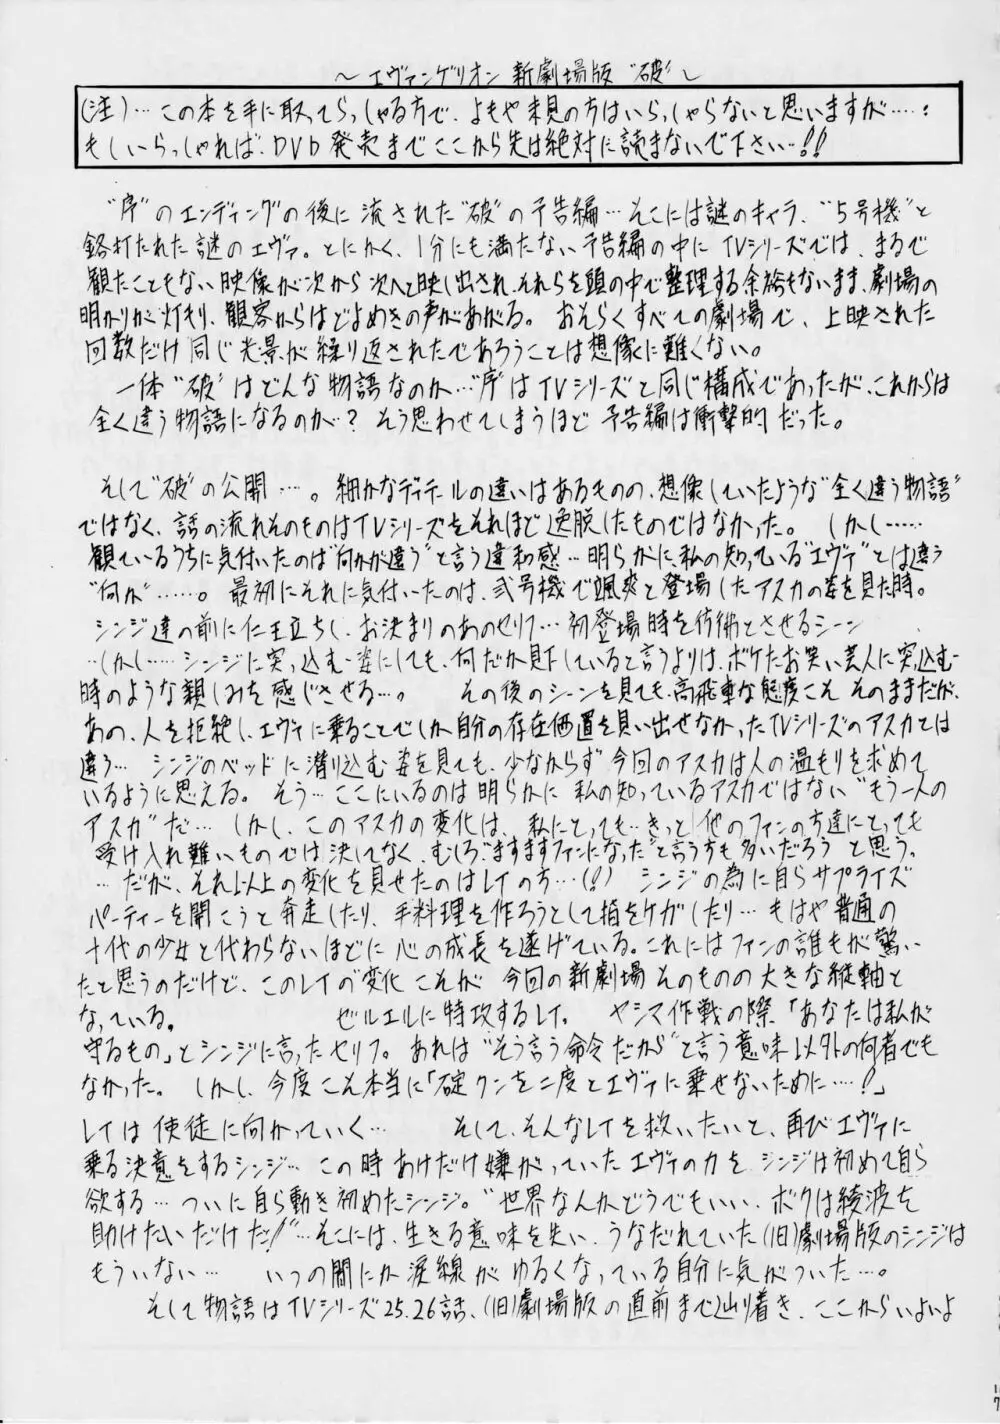 ～エヴァンゲリオン 新劇場版 “破”～
(注)…この本を手に取ってらっしゃる方で、よもや未見の方はいらっしゃらないと思いますが……:
もしいらっしゃれば、DVD発売までここから先は絶対に読まないで下さい…!!
“序”のエンディングの後に流された“破”の予告編…そこには謎のキャラ、“5号機”と
銘打たれた謎のエヴァ。とにかく、1分にも満たない予告編の中にTVシリーズでは、まるで
観たこともない映像が次から次へと映し出され、それらを頭の中で整理する余裕もないまま、劇場の
明かりが灯り、観客からはどよめきの声があがる。おそらくすべての劇場で、上映された
回数だけ同じ光景が繰り返されたであろうことは想像に難くない。
一体“破”はどんな物語なのか…“序”はTVシリーズと同じ構成であったが、これからは
全く違う物語になるのか…?そう思わせてしまうほど予告編は衝撃的だった。
そして“破”の公開…。細かなディテールの違いはあるものの、想像していたような“全く違う物語”
ではなく、話の流れそのものはTVシリーズをそれほど逸脱したものではなかった。しかし……
観ているうちに気付いたのは“何かが違う”と言う違和感…明らかに私の知っている“エヴァ”とは違う
“何か”……。最初にそれに気付いたのは、弐号機で颯爽と登場したアスカの姿を見た時。
シンジ達の前に仁王立ちし、お決まりのあのセリフ…初登場時を彷彿とさせるシーン
…しかし……シンジに突っ込む姿にしても、何だか見下していると言うよりは、ボケたお笑い芸人に突っ込む
時のような親しみを感じさせる…。その後のシーンを見ても、高飛車な態度こそそのままだが、
あの、人を拒絶し、エヴァに乗ることでしか自分の存在価値を見い出せなかったTVシリーズのアスカとは
違う… シンジのベッドに潜り込む姿を見ても、少なからず今回のアスカは人の温もりを求めて
いるように思える。そう…ここにいるのは明らかに私の知っているアスカではない“もう一人の
アスカ”だ…しかし、このアスカの変化は、私にとっても…きっと他のファンの方達にとっても
受け入れ難いものでは決してなく、むしろ“ますますファンになった”と言う方も多いだろうと思う。
…だが、それ以上の変化を見せたのはレイの方…(!) シンジの為に自らサプライズ
パーティーを開こうと奔走したり、手料理を作ろうとして指をケガしたり…もはや普通の
十代の少女と代わらないほどに心の成長を遂げている。これにはファンの誰もが驚い
たと思うのだけど、このレイの変化こそが今回の新劇場そのものの大きな縦軸と
なっている。 ゼルエルに特攻するレイ。ヤシマ作戦の際「あなたは私が
守るもの」とシンジに言ったセリフ。あれは“そう言う命令だから”と言う意味以外の何者でも
なかった。しかし、今度こそ本当に「碇クンを二度とエヴァに乗せないために…!」
レイは使徒に向かっていく… そして、そんなレイを救いたいと、再びエヴァに
乗る決意をするシンジ…この時あれだけ嫌がっていたエヴァの力をシンジは初めて自ら
欲する…ついに自ら動き初めたシンジ。“世界なんかどうでもいい、ボクは綾波を
助けたいだけだ!”…そこには、生きる意味を失い、うなだれていた(旧)劇場版のシンジは
もういない… いつの間にか涙線がゆるくなっている自分に気がついた…。
そして物語はTVシリーズ25.26話、(旧)劇場版の直前まで辿り着き、ここからいよいよ
17